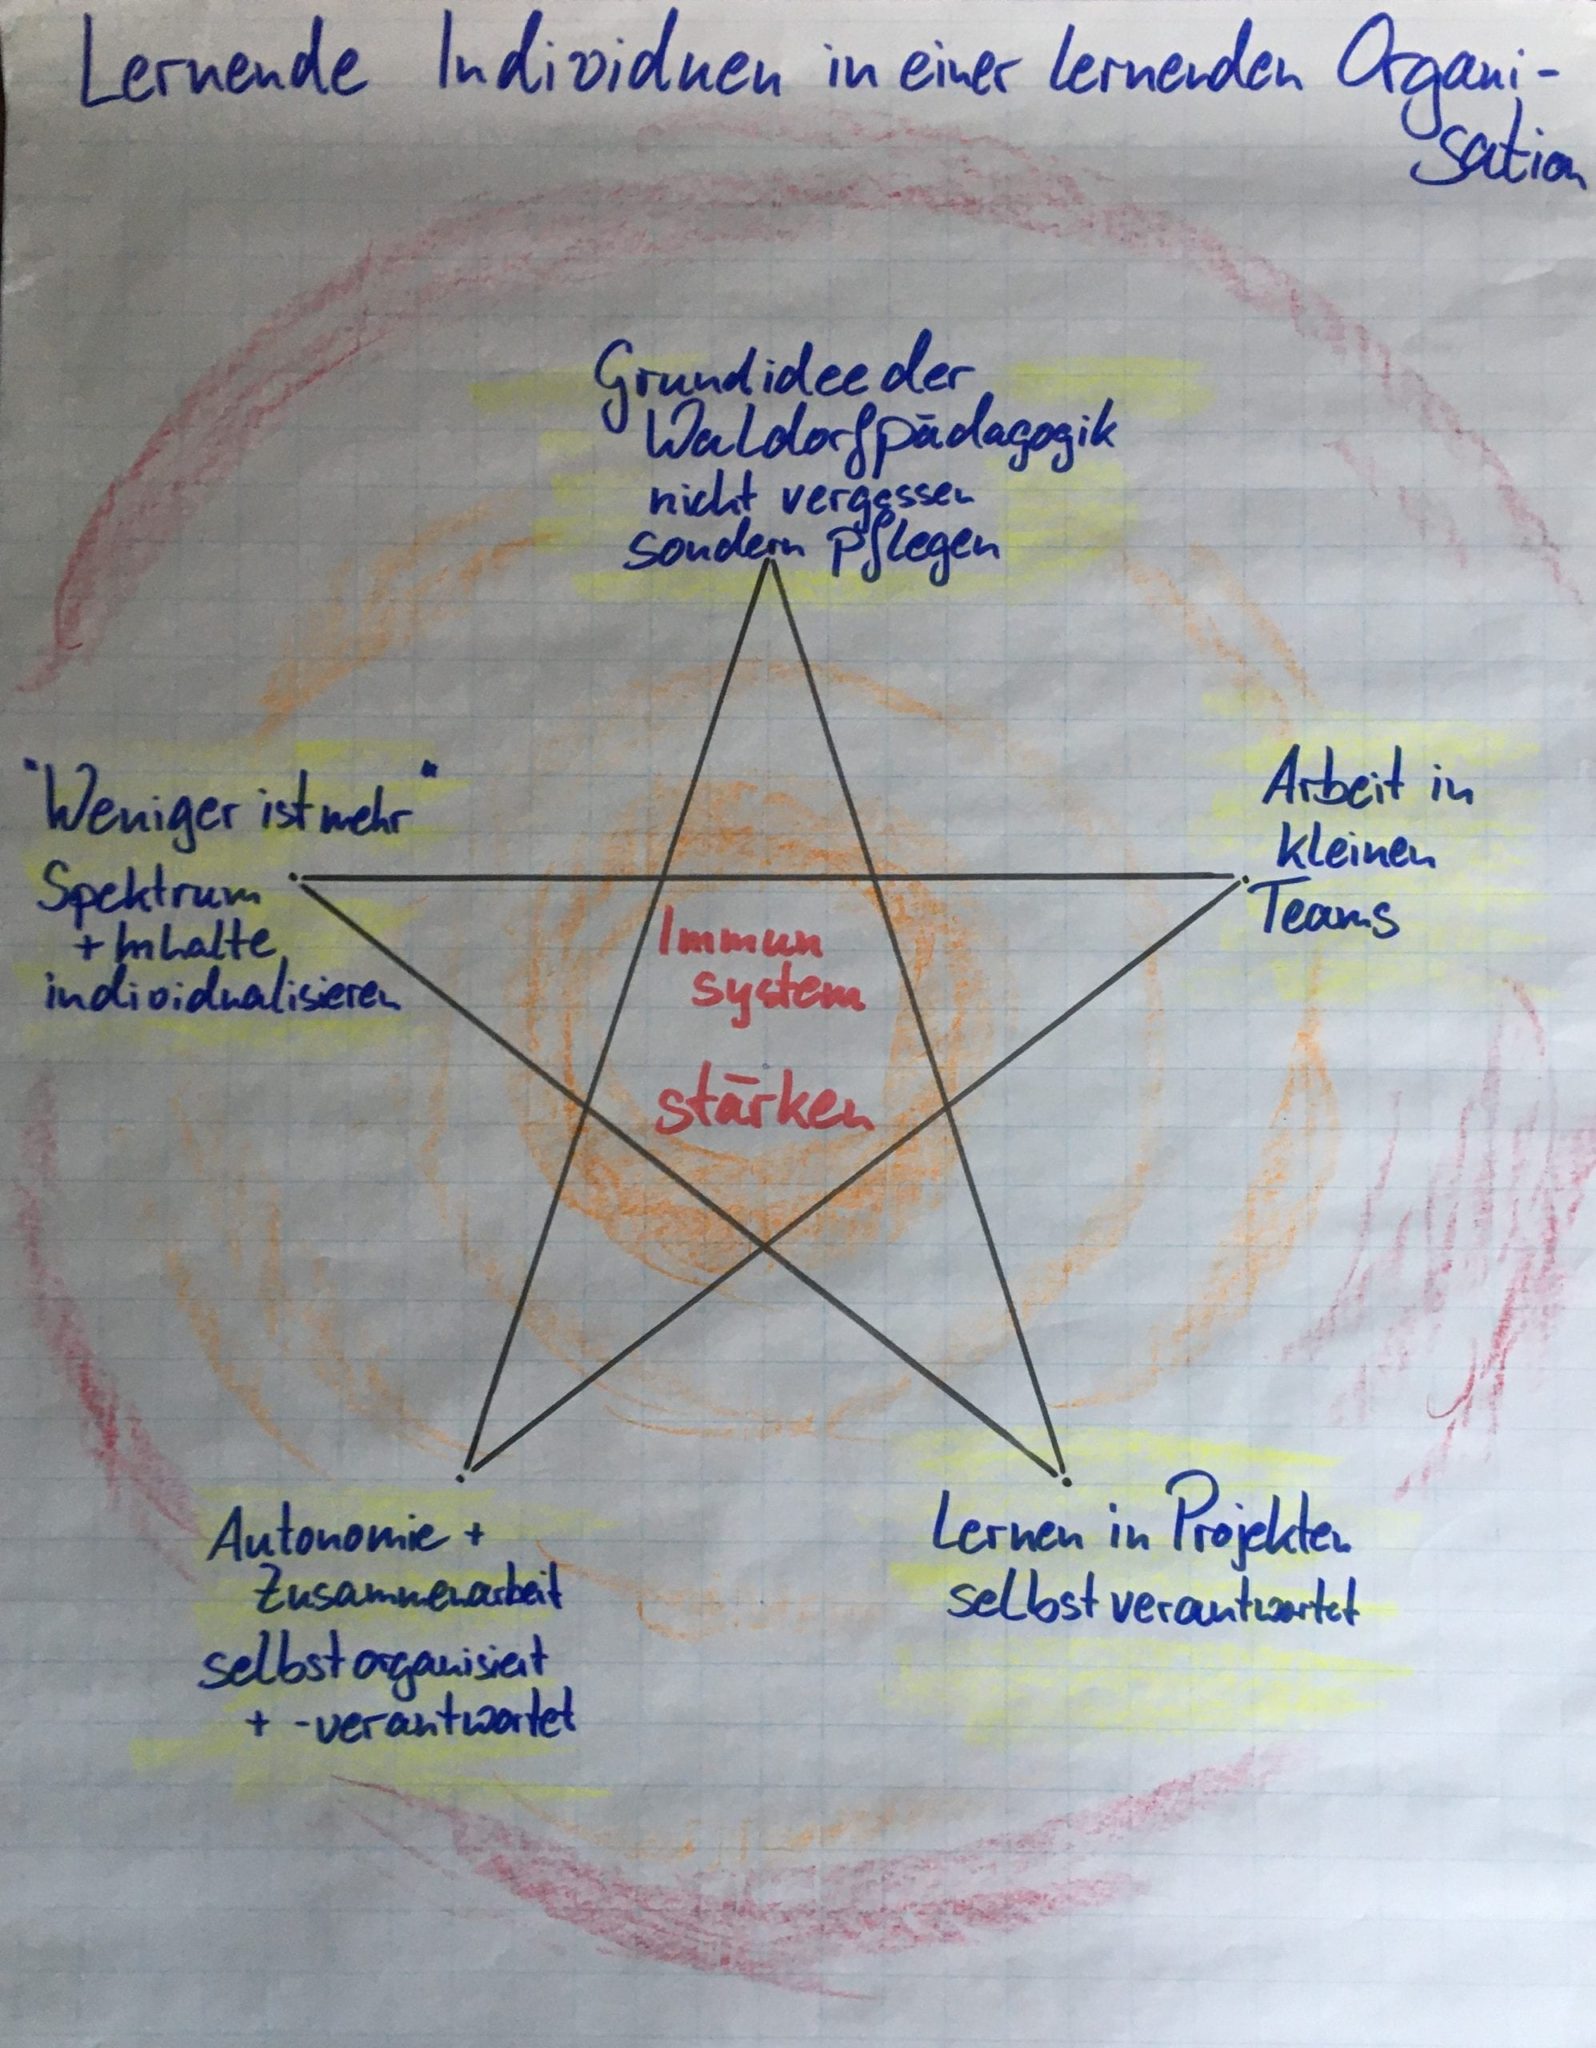 Lernende Individuen in einer lernenden Organi-
sation
Grundidee der
Waldorfpädagogik
nicht vergessen
sondern pflegen
"Weniger ist mehr"
Spektrum
+ Inhalte
individualisieren
Arbeit in
kleinen
Teams
Immun
system
stärken
Autonomie +
Zusammenarbeit
selbstorganisiert
+ -verantwortet
Lernen in Projekten
selbstverantwortet